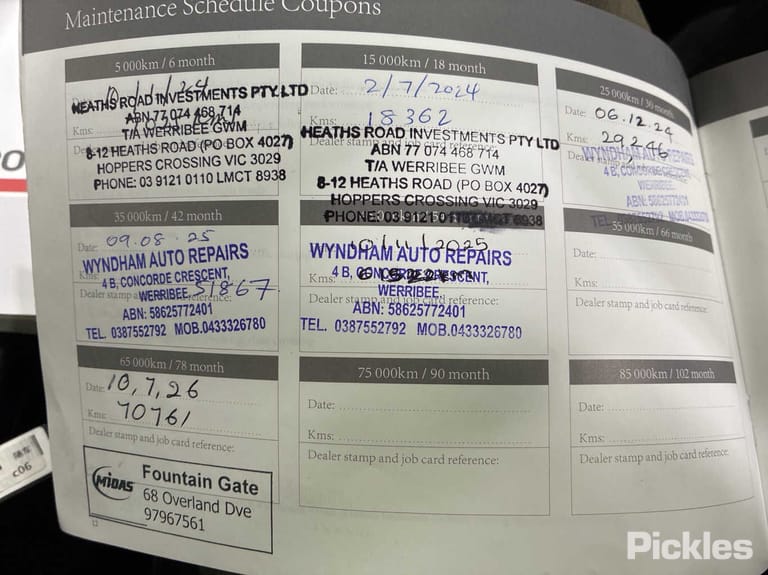 Maintenance Schedule Coupons
5 000km / 6 month
HEATHS ROAD INVESTMENTS PTY.LTD
ABN 77 074 468 714
T/A WERRIBEE GWM
8-12 HEATHS ROAD (PO BOX 4027)
HOPPERS CROSSING VIC 3029
PHONE: 03 9121 0110 LMCT 8938
15 000km / 18 month
Date: 2/7/2024
Kms: 18362
Dealer stamp and job card reference:
HEATHS ROAD INVESTMENTS PTY LTD
ABN 77 074 468 714
T/A WERRIBEE GWM
8-12 HEATHS ROAD (PO BOX 4027)
HOPPERS CROSSING VIC 3029
PHONE: 03 9121 0110 8938
25 000km / 30 month
Date: 06.12.24
Kms: 29246
WYNDHAM AUTO REPAIRS
4 B, CONCORDE CRESCENT,
WERRIBEE,
ABN: 58625772401
TEL. 0387552792 MOB.0433326780
35 000km / 42 month
Date: 09.08.25
WYNDHAM AUTO REPAIRS
4 B, CONCORDE CRESCENT,
WERRIBEE, 51867
Dealer stamp reference:
ABN: 58625772401
TEL. 0387552792 MOB.0433326780
10/11/2025
WYNDHAM AUTO REPAIRS
Kms:
4 B, CONCORDE CRESCENT,
WERRIBEE,
Dealer stamp and job card reference:
ABN: 58625772401
TEL. 0387552792 MOB.0433326780
55 000km / 66 month
Date:
Kms:
Dealer stamp and job card reference:
65 000km / 78 month
Date: 10,7,26
Kms: 70761
Dealer stamp and job card reference:
MIDAS
Fountain Gate
68 Overland Dve
97967561
75 000km / 90 month
Date:
Kms:
Dealer stamp and job card reference:
85 000km / 102 month
Date:
Kms:
Dealer stamp and job card reference:
12
c06
Pickles